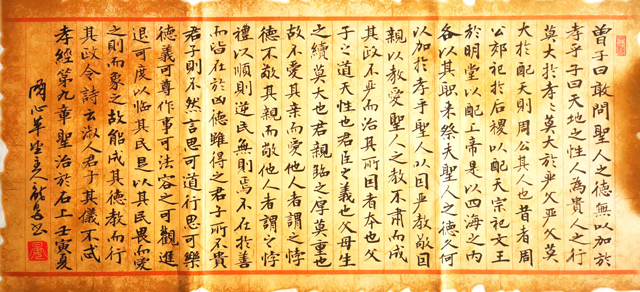 曾子曰敢問聖人之德無以加於
孝乎子曰天地之性人為貴人之行
莫大於孝〻莫大於严父严父莫
大於配天則周公其人也昔者周
公郊祀於后稷以配天宗祀文王
於明堂以配上帝是以四海之內
各以其职来祭夫聖人之德又何
以加於孝乎聖人以因严教敬因
親以教愛聖人之教不肅而成
其政不严而治其所因者本也父
子之道天性也君臣之義也父母生
之續莫大也君親臨之厚莫重也
故不愛其亲而愛他人者謂之悖
德不敬其親而敬他人者謂之悖
禮以順則逆民無則焉不在於善
而皆在於凶德雖得之君子所不貴
君子則不然言思可道行思可樂
德義可尊作事可法容之可觀進
退可度以临其民是以其民畏而愛
之則而象之故能成其德教而行
其政令詩云淑人君子其儀不忒
孝經第九章聖治於石上壬寅夏
心草堂主人